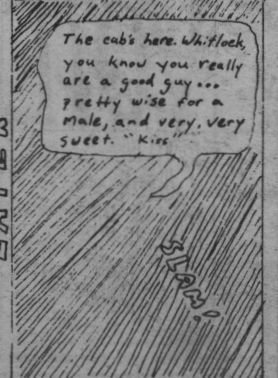 The cab's here. Whitlock,
you know you really
are a good guy...
pretty wise for a
male, and very, very
sweet. "Kiss"
SLAM!